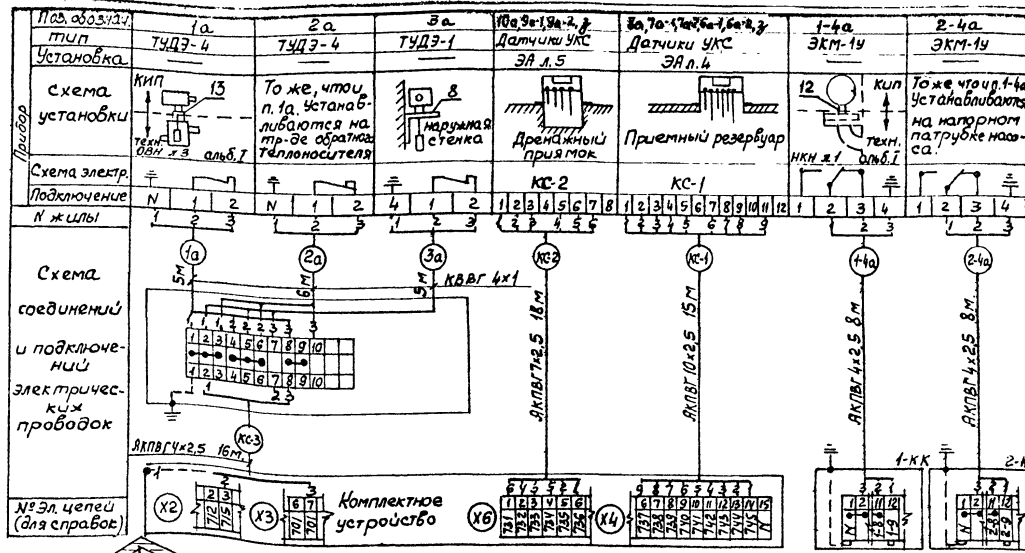 Поз. обознач. 1а 2а 3а 10а, 9а-1, 9а-2, 8а, 7а-1, 7а-2, 6а-1, 6а-2, 1-4а 2-4а
тип ТУДЭ-4 ТУДЭ-4 ТУДЭ-1 Датчики УКС Датчики УКС ЭКМ-1У ЭКМ-1У
Установка ЭА л.5 ЭА л.4
Прибор
Схема установки
КИП
13
техн.
ОВН л 3 альб. I
То же, что и
п. 1а. Устанав-
ливаются на
тр-де обратного
теплоносителя
8
наружная
стенка
Дренажный
приямок
Приемный резервуар
12
КИП
техн.
НКН л 1 альб. I
То же что и п. 1-4а
Устанавливаются
на напорном
патрубке насо-
са.
Схема электр. КС-2 КС-1
Подключение N 1 2 N 1 2 4 1 2 1 2 3 4 5 6 7 8 1 2 3 4 5 6 7 8 9 10 11 12 1 2 3 4 1 2 3 4
N жилы 1 2 3 1 2 3 1 2 3 1 2 3 4 5 6 1 2 3 4 5 6 7 8 9 1 2 3 1 2 3
Схема
соединений
и подключе-
ний
электричес-
ких
проводок
1а 2а 3а КС2 КС-1 1-4а 2-4а
5м 6м 5м КВВГ 4×1
АКПВГ 7×2,5 18м
АКПВГ 10×2,5 15м
АКПВГ 4×2,5 8м
АКПВГ 4×2,5 8м
1 1 1 2 2 2 3 3 3
1 2 3 4 5 6 7 8 9 10
1 2 3 4 5 6 7 8 9 10
1 2 3
КС-3
АКПВГ 4×2,5 16м.
1 2 3
№ Эл. цепей
(для справок)
Х2 2 3
712 715
Х3 6 7
701 701
Комплектное
устройство
Х6 6 4 3 5 2 1
1 2 3 4 5 6
731 732 733 734 735 736
Х4 9 8 7 6 5 4 3 2 1
6 7 8 9 10 11 12 13 14 15
737 738 739 740 741 742 743 744 745 N
1-КК
3 2 1
1 2 11 12
N 1-8 1-9
2-К
3 2 1
1 2 11 12
N 2-8 2-9